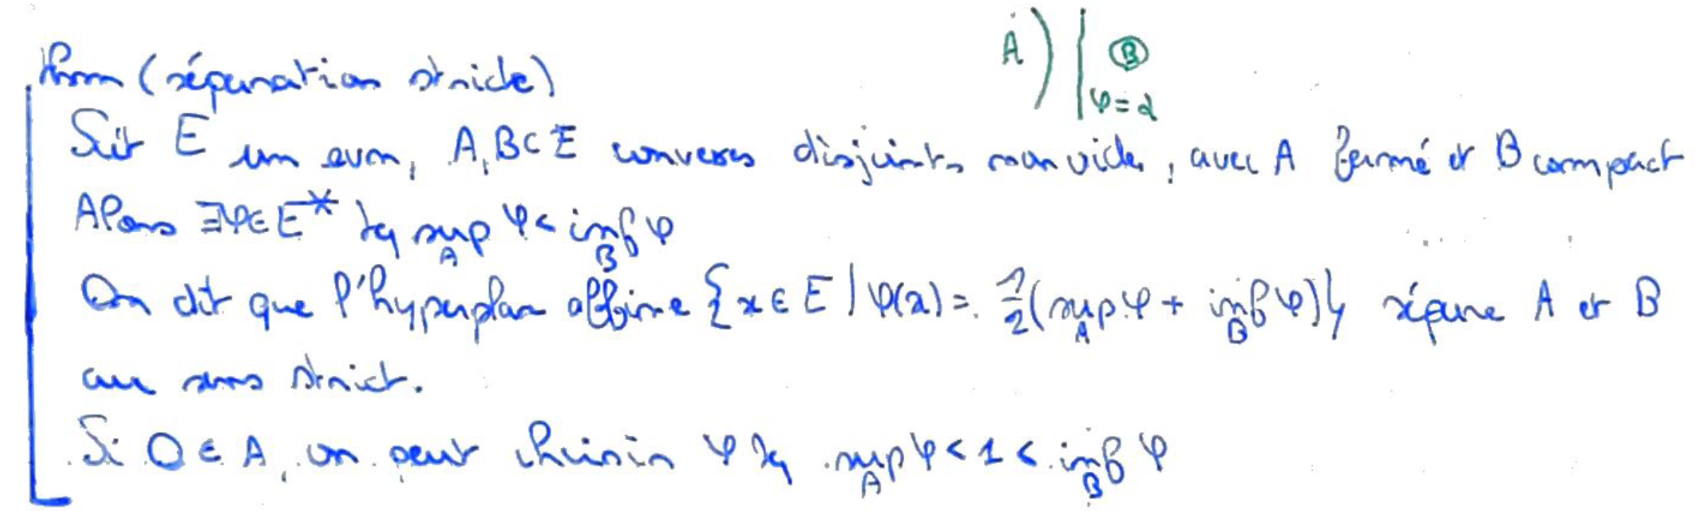 Thm (séparation stricte)
A B
φ=α
Soit E un evn, A,B⊂E convexes disjoints non vides, avec A fermé et B compact
Alors ∃φ∈E* tq sup_A φ < inf_B φ
On dit que l'hyperplan affine {x∈E | φ(x) = 1/2(sup_A φ + inf_B φ)} sépare A et B
au sens strict.
Si 0∈A, on peut choisir φ tq sup_A φ < 1 < inf_B φ